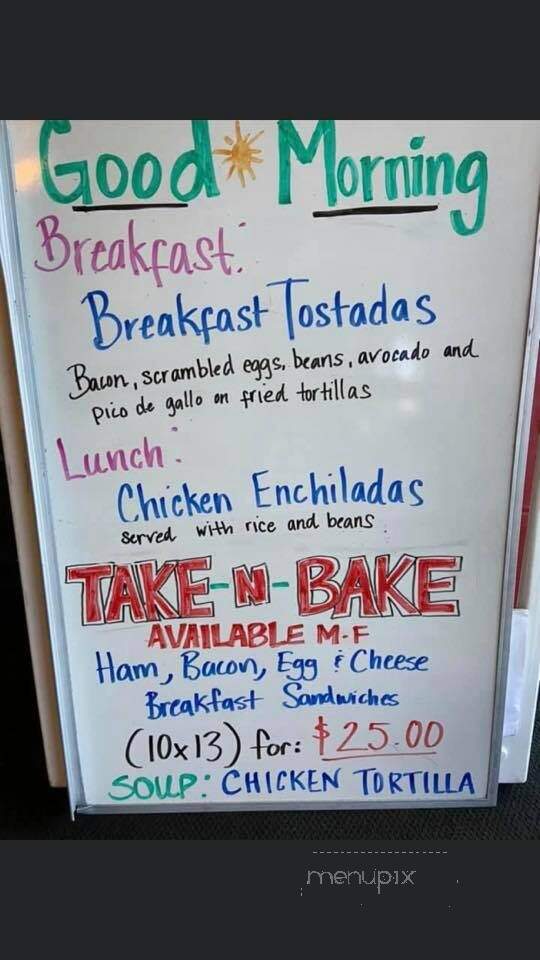 Good Morning
Breakfast:
Breakfast Tostadas
Bacon, scrambled eggs, beans, avocado and
pico de gallo on fried tortillas
Lunch:
Chicken Enchiladas
served with rice and beans.
TAKE-N-BAKE
AVAILABLE M-F
Ham, Bacon, Egg & Cheese
Breakfast Sandwiches
(10x13) for: $25.00
SOUP: CHICKEN TORTILLA
menupix